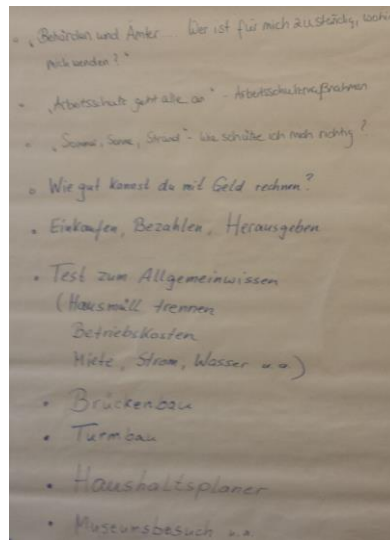 • „Behörden und Ämter... Wer ist für mich zuständig, wohin
mich wenden?"
• „Arbeitsschutz geht alle an" - Arbeitsschutzmaßnahmen
• „Sommer, Sonne, Strand" - Wie schütze ich mich richtig?
• Wie gut kannst du mit Geld rechnen?
• Einkaufen, Bezahlen, Herausgeben
• Test zum Allgemeinwissen
(Hausmüll trennen
Betriebskosten
Miete, Strom, Wasser u.a.)
• Brückenbau
• Turmbau
• Haushaltsplaner
• Museumsbesuch u.a.